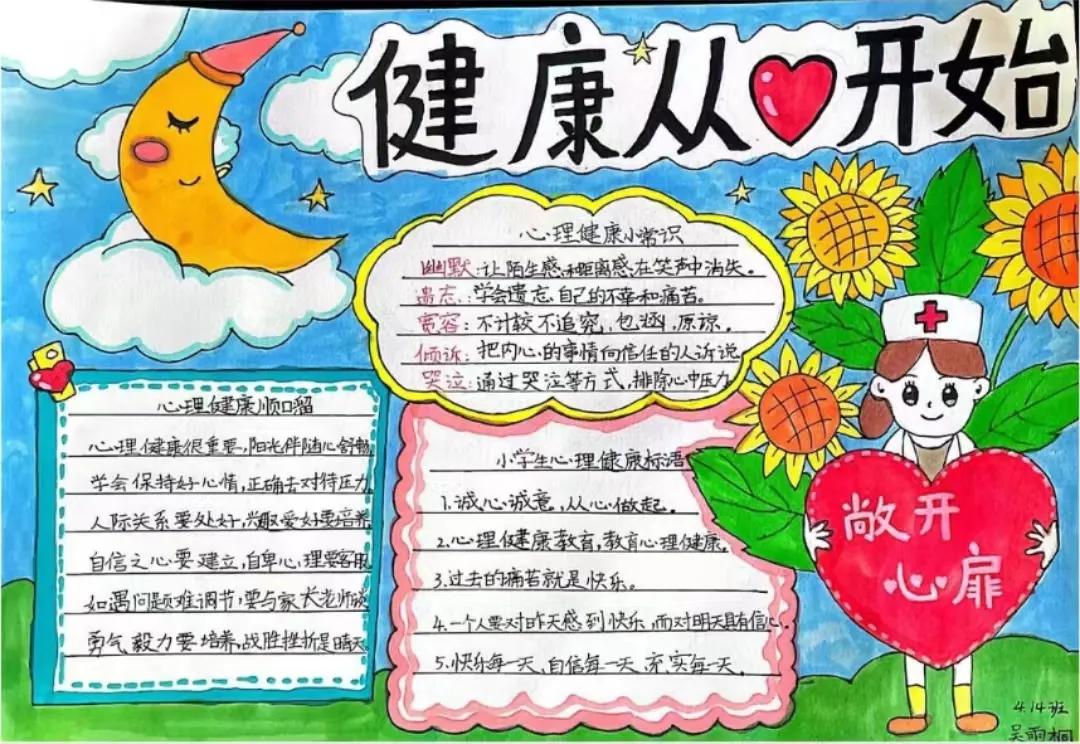 健康从❤开始
心理健康小常识
幽默:让陌生感和距离感在笑声中消失。
遗忘:学会遗忘自己的不幸和痛苦。
宽容:不计较不追究,包涵,原谅。
倾诉:把内心的事情向信任的人诉说
哭泣:通过哭泣等方式,排除心中压力
心理健康顺口溜
心理健康很重要,阳光伴随心舒畅
学会保持好心情,正确去对待压力
人际关系要处好,兴趣爱好要培养
自信之心要建立,自卑心理要客服
如遇问题难调节,要与家长老师谈
勇气毅力要培养,战胜挫折是晴天
小学生心理健康标语
1.诚心诚意,从心做起。
2.心理健康教育,教育心理健康,
3.过去的痛苦就是快乐。
4.一个人要对昨天感到快乐,而对明天具有信心。
5.快乐每一天,自信每一天,充实每一天。
敞开
心扉
4.14班
吴雨桐